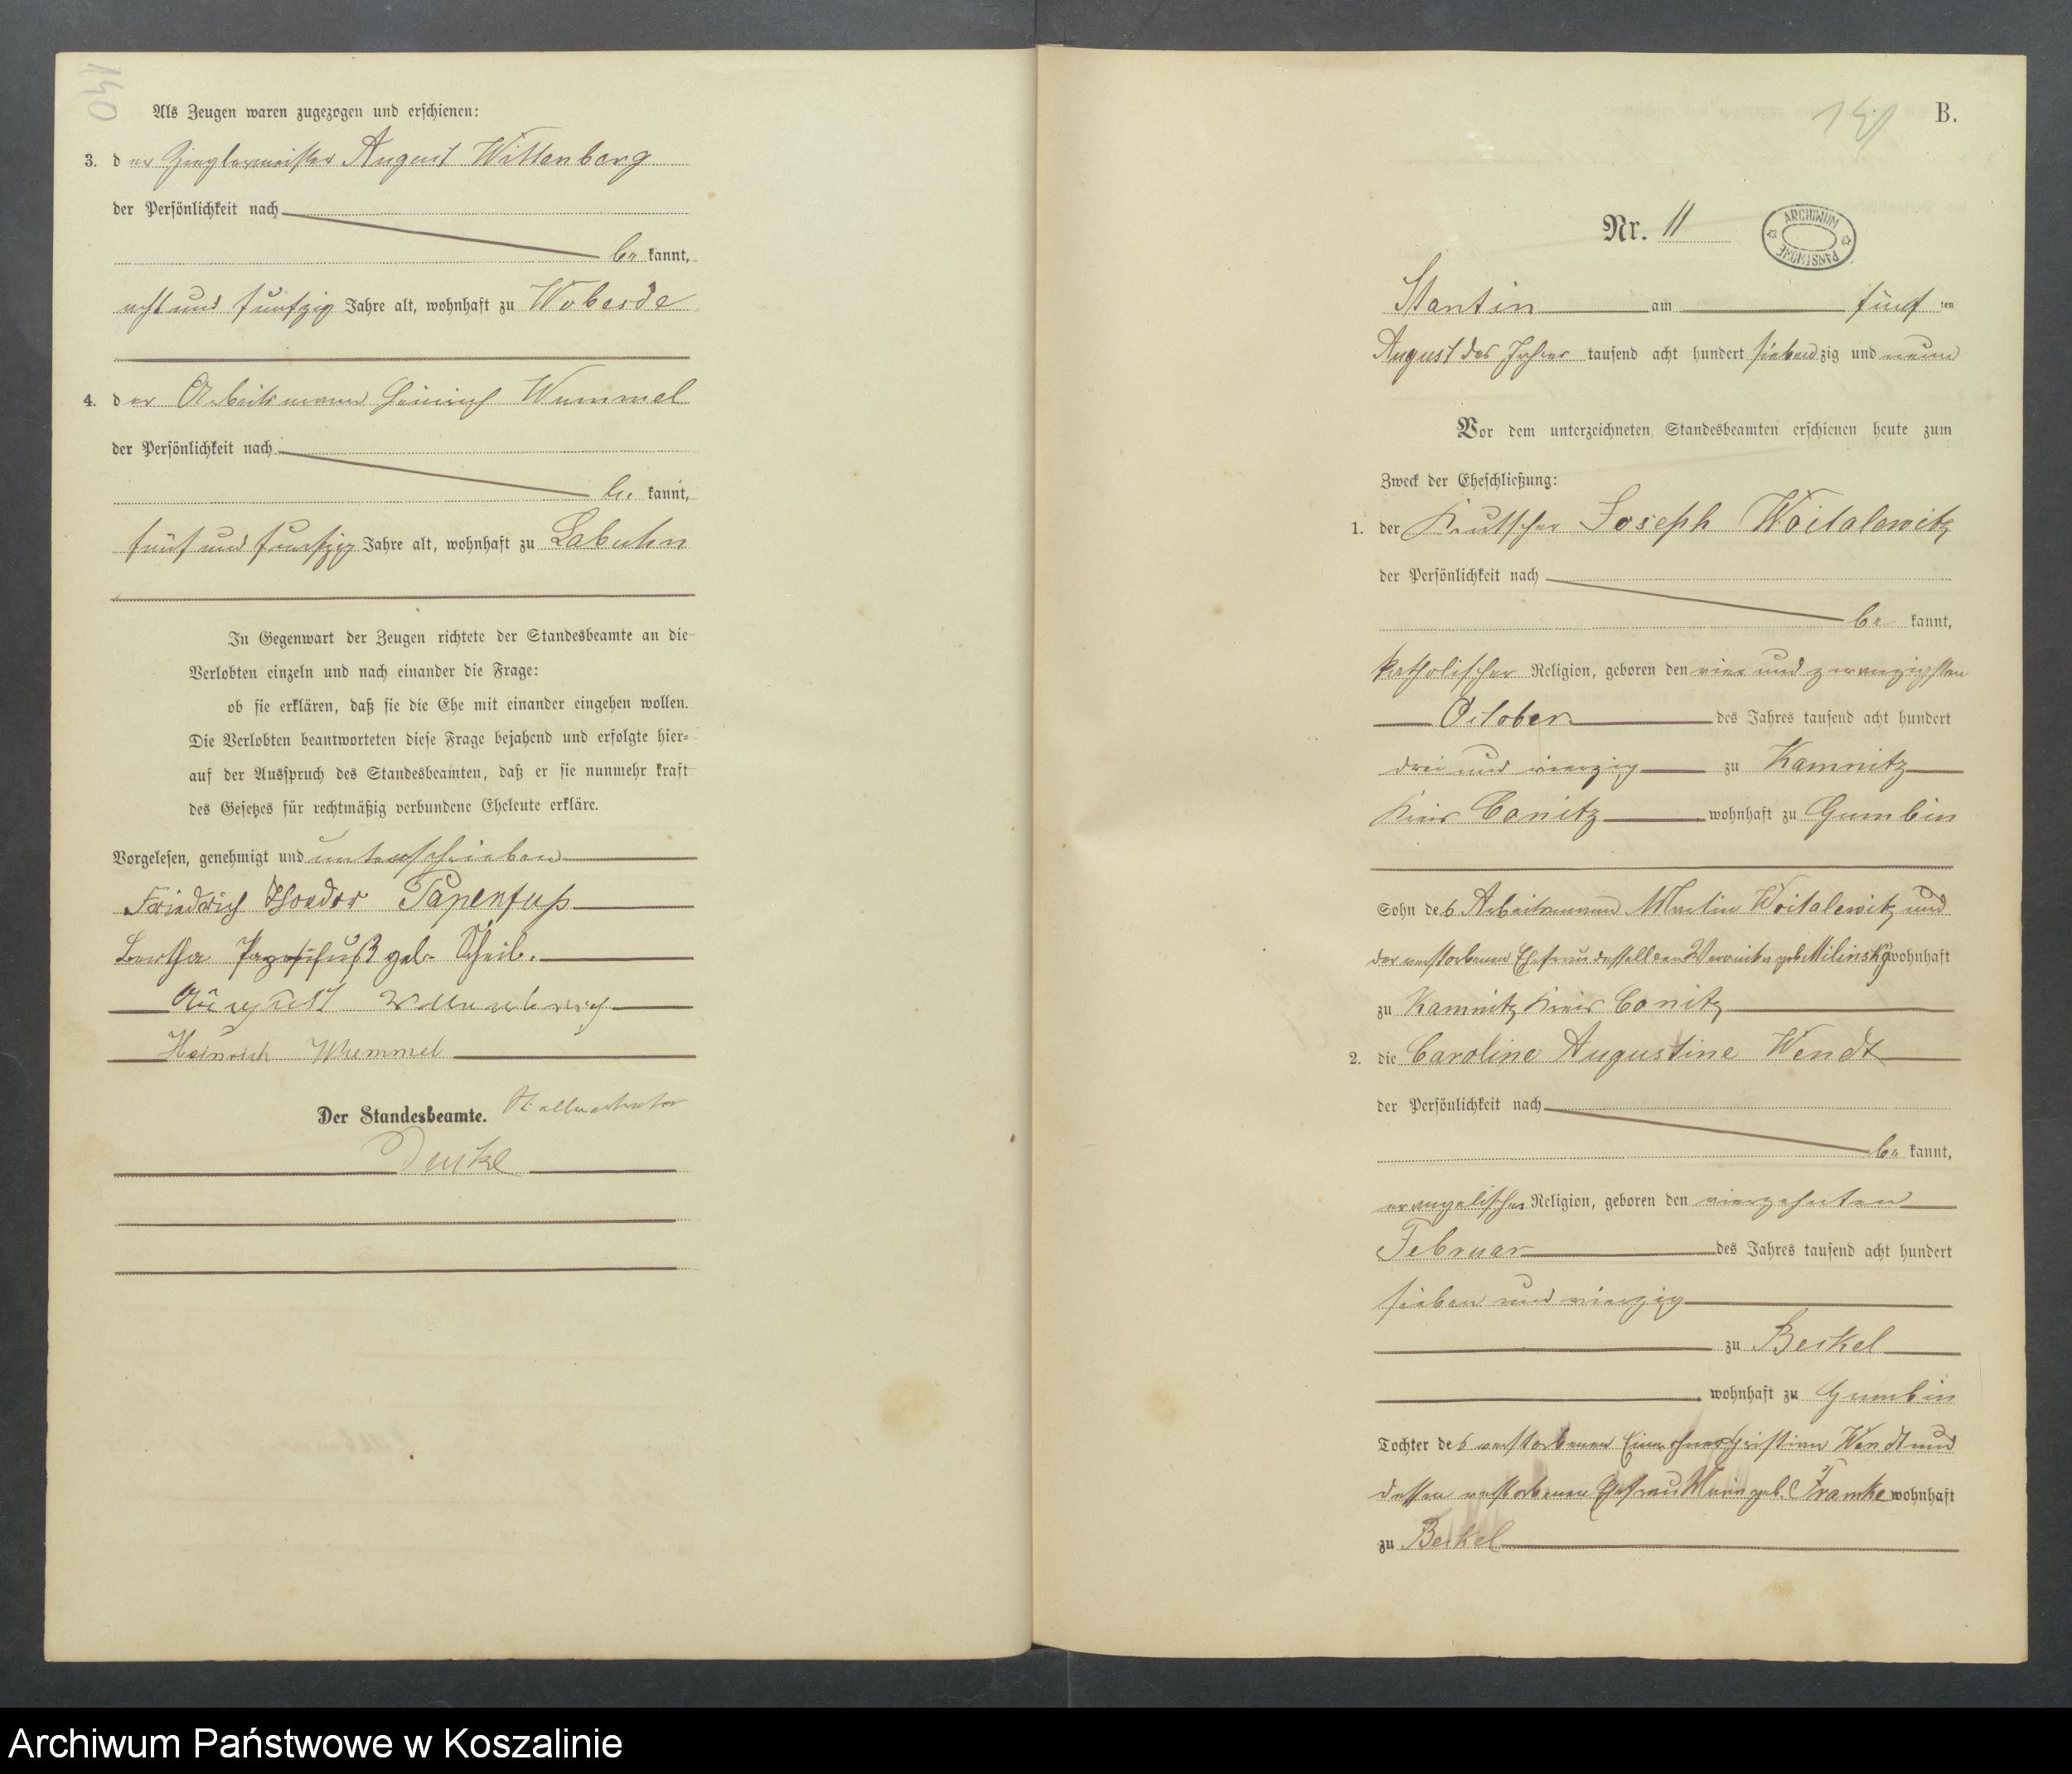 140
Als Zeugen waren zugezogen und erschienen:
3. der Zieglermeister August Wittenberg
der Persönlichkeit nach
be kannt,
acht und fünfzig Jahre alt, wohnhaft zu Wobesde
4. der Arbeitsmann Heinrich Wummel
der Persönlichkeit nach
be kannt,
fünf und fünfzig Jahre alt, wohnhaft zu Labuhn
In Gegenwart der Zeugen richtete der Standesbeamte an die
Verlobten einzeln und nach einander die Frage:
ob sie erklären, daß sie die Ehe mit einander eingehen wollen.
Die Verlobten beantworteten diese Frage bejahend und erfolgte hier-
auf der Ausspruch des Standesbeamten, daß er sie nunmehr kraft
des Gesetzes für rechtmäßig verbundene Eheleute erkläre.
Vorgelesen, genehmigt und unterschrieben
Friedrich Theodor Papenfuß
Bertha Papenfuß geb. Theil.
August Wittenberg
Heinrich Wummel
Der Standesbeamte. Stellvertreter
141 B.
Nr. 11
ARCHIWUM PAŃSTWOWE
Stantin am fünf ten
August des Jahres tausend acht hundert siebenzig und neun
Vor dem unterzeichneten Standesbeamten erschienen heute zum
Zweck der Eheschließung:
1. der Kutscher Joseph Woitalewitz
der Persönlichkeit nach
be kannt,
katholischer Religion, geboren den vier und zwanzigsten
October des Jahres tausend acht hundert
drei und vierzig zu Kamnitz
Kreis Conitz wohnhaft zu Gumbin
Sohn des Arbeitsmann Martin Woitalewitz und
der verstorbenen Ehefrau desselben Veronika geb. Milinsky wohnhaft
zu Kamnitz Kreis Conitz
2. die Caroline Augustine Wendt
der Persönlichkeit nach
be kannt,
evangelischer Religion, geboren den vierzehnten
Februar des Jahres tausend acht hundert
sieben und vierzig
zu Beskel
wohnhaft zu Gumbin
Tochter des verstorbenen Einwohner Christian Wendt und
dessen verstorbenen Ehefrau Marie geb. Framke wohnhaft
zu Beskel
Archiwum Państwowe w Koszalinie